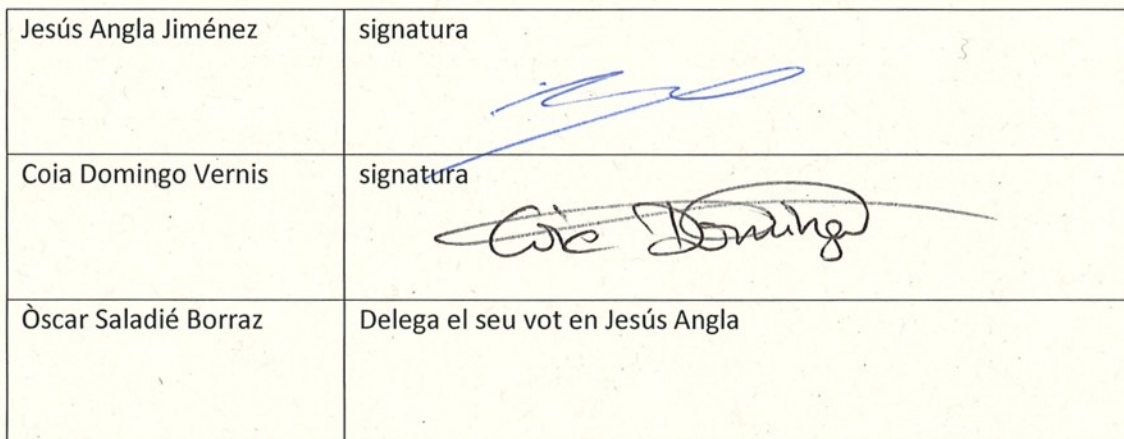 Jesús Angla Jiménez
signatura
Coia Domingo Vernis
signatura
Coia Domingo
Òscar Saladié Borraz
Delega el seu vot en Jesús Angla